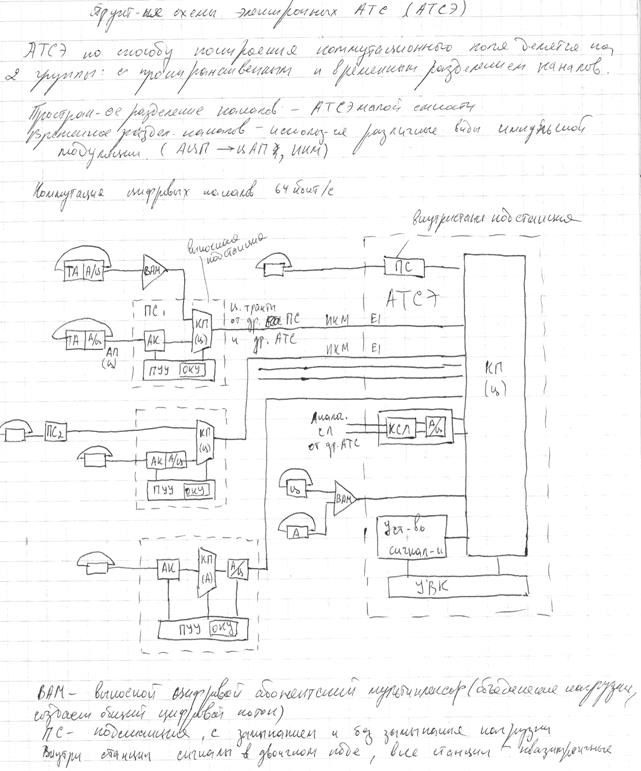 Структ-ные схемы электронных АТС (АТСЭ)
АТСЭ по способу построения коммутационного поля делятся на
2 группы: с пространственным и временным разделением каналов.
Простран-ое разделение каналов – АТСЭ малой емкости
Временное раздел. каналов – использ-ся различные виды импульсной
модуляции. (АЦП → ЦАП, ИКМ)
Коммутация цифровых каналов 64 кбит/с
внутристанц подстанция
выносная
подстанция
ТА А/ц
ВАМ
ПС
ПС1
КП
(ц)
ц. тракты
от др. ПС
и др. АТС
АТСЭ
ИКМ E1
ТА А/ц
АП
(ц)
АК
ПУУ ОКУ
ИКМ E1
КП
(ц)
ПС2
КП
(ц)
АК А/ц
ПУУ ОКУ
Аналог.
СЛ
от др. АТС
КСЛ А/ц
ц
ВАМ
А
Уст-во
сигнал-и
АК
КП
(А)
А/ц
ПУУ ОКУ
УВК
ВАМ – выносной цифровой абонентский мультиплексор (объединение нагрузки,
создаем общий цифровой поток)
ПС – подстанция, с замыканием и без замыкания нагрузки
Внутри станции сигналы в двоичном коде, вне станции – квазитроичные